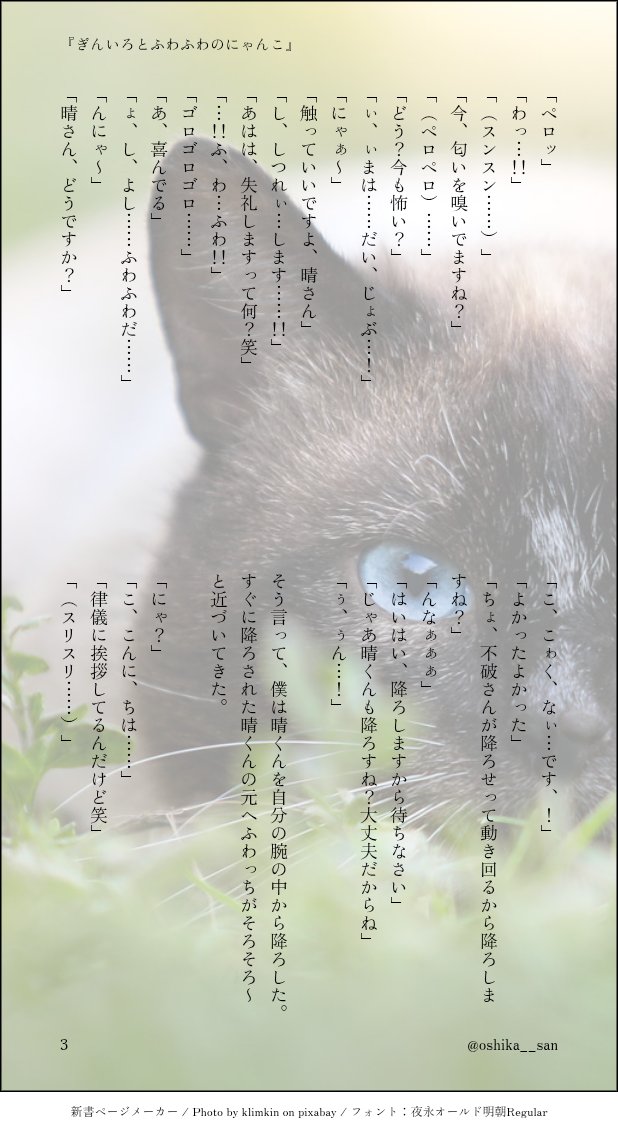 『ぎんいろとふわふわのにゃんこ』
「ペロッ」
「わっ…!!」
「（スンスン……）」
「今、匂いを嗅いでますね？」
「（ペロペロ）……」
「どう？今も怖い？」
「ぃ、ぃまは……だい、じょぶ…！」
「にゃぁ～」
「触っていいですよ、晴さん」
「し、しつれぃ…します……!!」
「あはは、失礼しますって何？笑」
「…!!ふ、わ…ふわ!!」
「ゴロゴロゴロ……」
「あ、喜んでる」
「ょ、し、よし……ふわふわだ……」
「んにゃ～」
「晴さん、どうですか？」
「こ、こゎく、なぃ…です、！」
「よかったよかった」
「ちょ、不破さんが降ろせって動き回るから降ろしま
すね？」
「んなぁぁぁ」
「はいはい、降ろしますから待ちなさい」
「じゃあ晴くんも降ろすね？大丈夫だからね」
「ぅ、ぅん…！」
そう言って、僕は晴くんを自分の腕の中から降ろした。
すぐに降ろされた晴くんの元へふわっちがそろそろ～
と近づいてきた。
「にゃ？」
「こ、こんに、ちは……」
「律儀に挨拶してるんだけど笑」
「（スリスリ……）」
3
@oshika__san
新書ページメーカー / Photo by klimkin on pixabay / フォント：夜永オールド明朝Regular